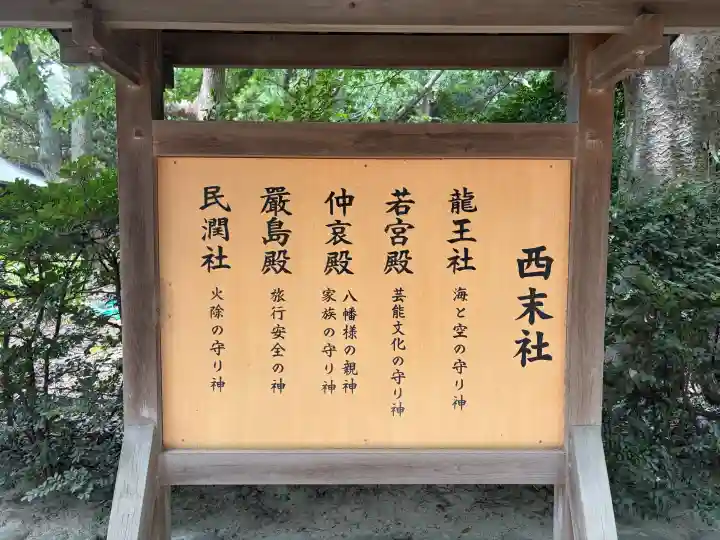 西末社
龍王社
海と空の守り神
若宮殿
芸能文化の守り神
仲哀殿
八幡様の親神
家族の守り神
嚴島殿
旅行安全の神
民潤社
火除の守り神